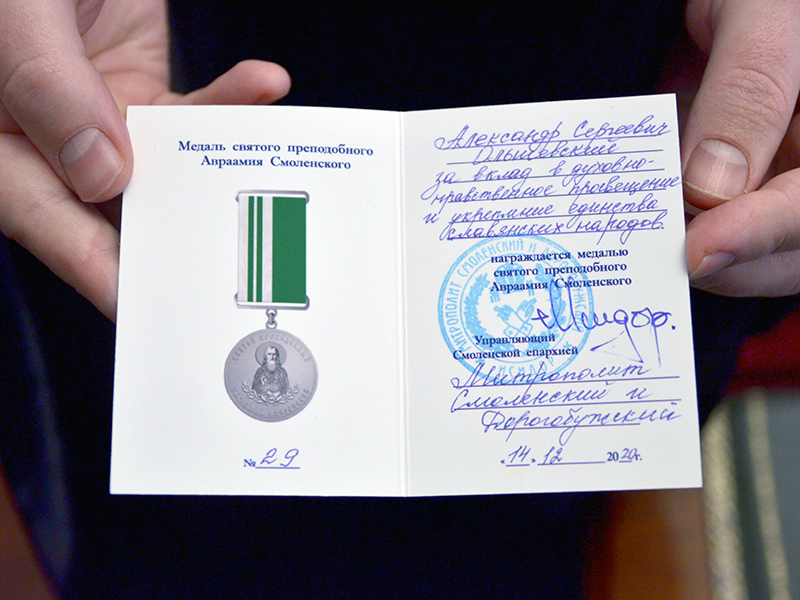 Медаль святого преподобного
Авраамия Смоленского
СВЯТОЙ ПРЕПОДОБНЫЙ
АВРААМИЙ СМОЛЕНСКИЙ
№ 29
Александр Сергеевич
Ольшевский
за вклад в духовно-
нравственное просвещение
и укрепление единства
славянских народов.
награждается медалью
святого преподобного
Авраамия Смоленского
МИТРОПОЛИТ СМОЛЕНСКИЙ И ДОРОГОБУЖСКИЙ
ИСИДОР
+Исидор.
Управляющий
Смоленской епархией
Митрополит
Смоленский и
Дорогобужский
«14» 12 2020г.